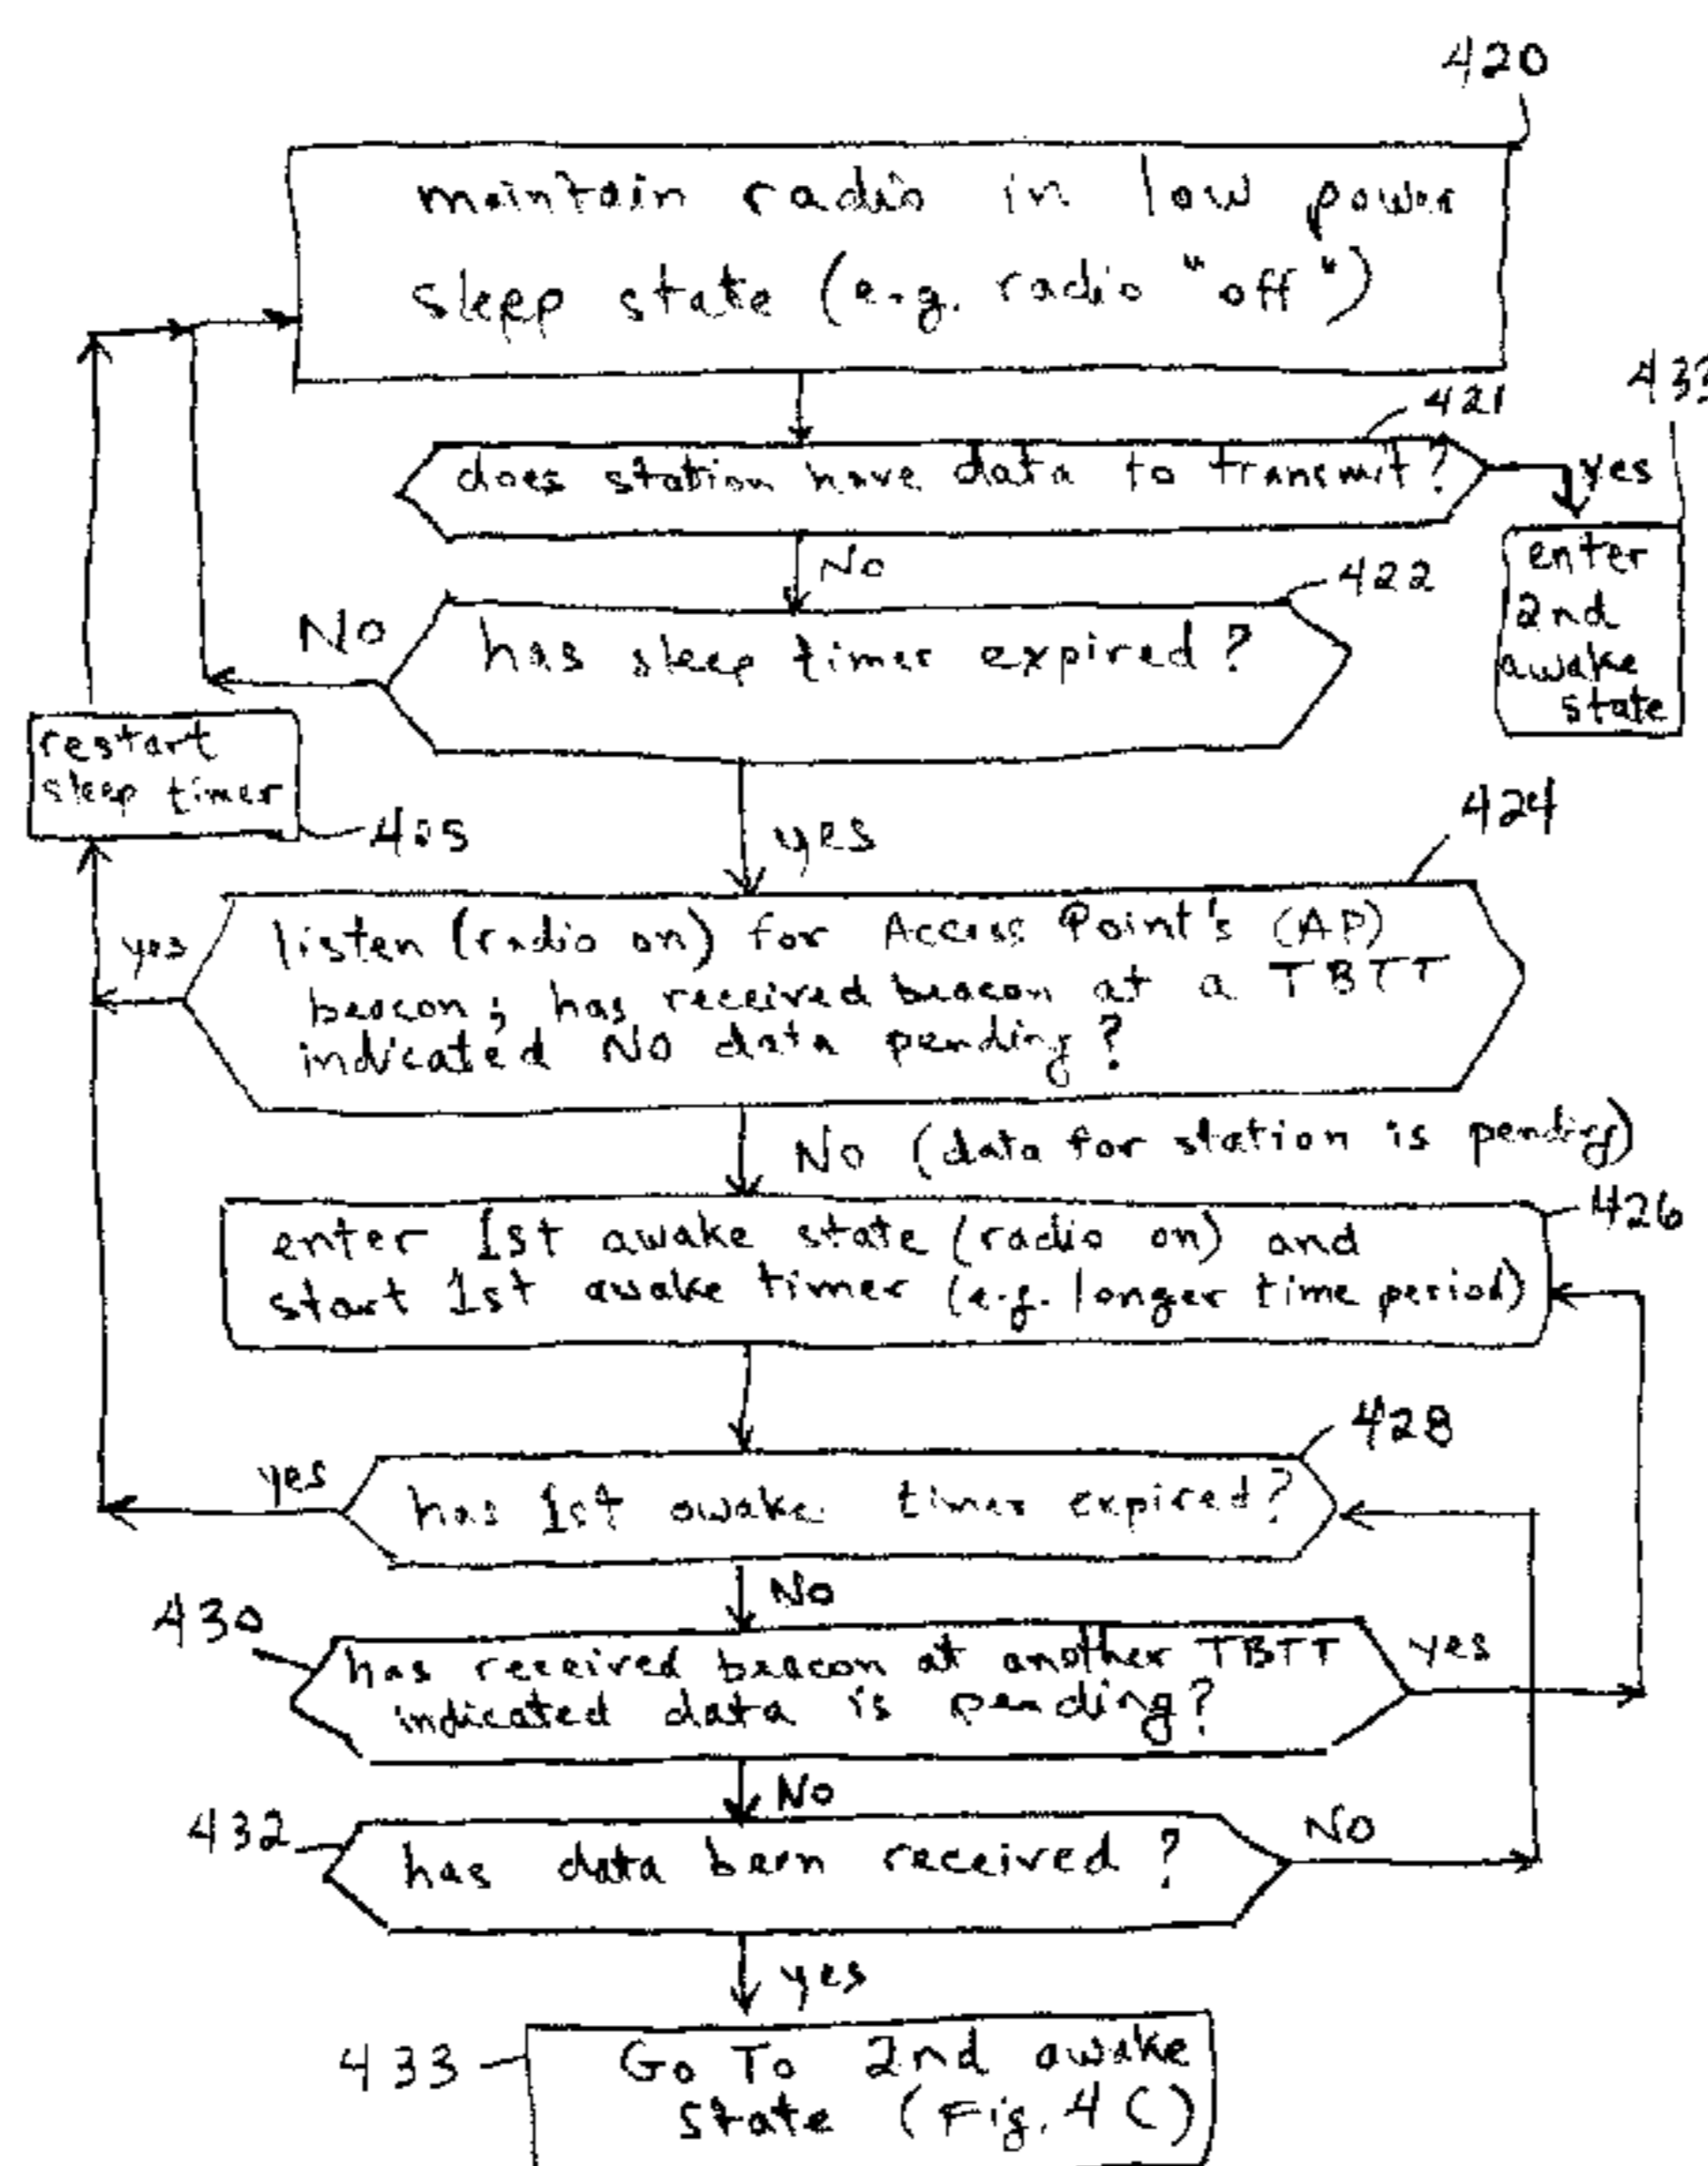 420
maintain radio in low power
sleep state (e.g. radio "off")
421
433
does station have data to transmit?
yes
enter
2nd
awake
state
No
422
has sleep timer expired?
No
restart
sleep timer
405
yes
424
listen (radio on) for Access Point's (AP)
beacon; has received beacon at a TBTT
indicated NO data pending?
yes
No (data for station is pending)
426
enter 1st awake state (radio on) and
start 1st awake timer (e.g. longer time period)
428
has 1st awake timer expired?
yes
No
430
has received beacon at another TBTT
indicated data is pending?
yes
No
432
has data been received?
No
yes
433
Go To 2nd awake
state (Fig. 4C)